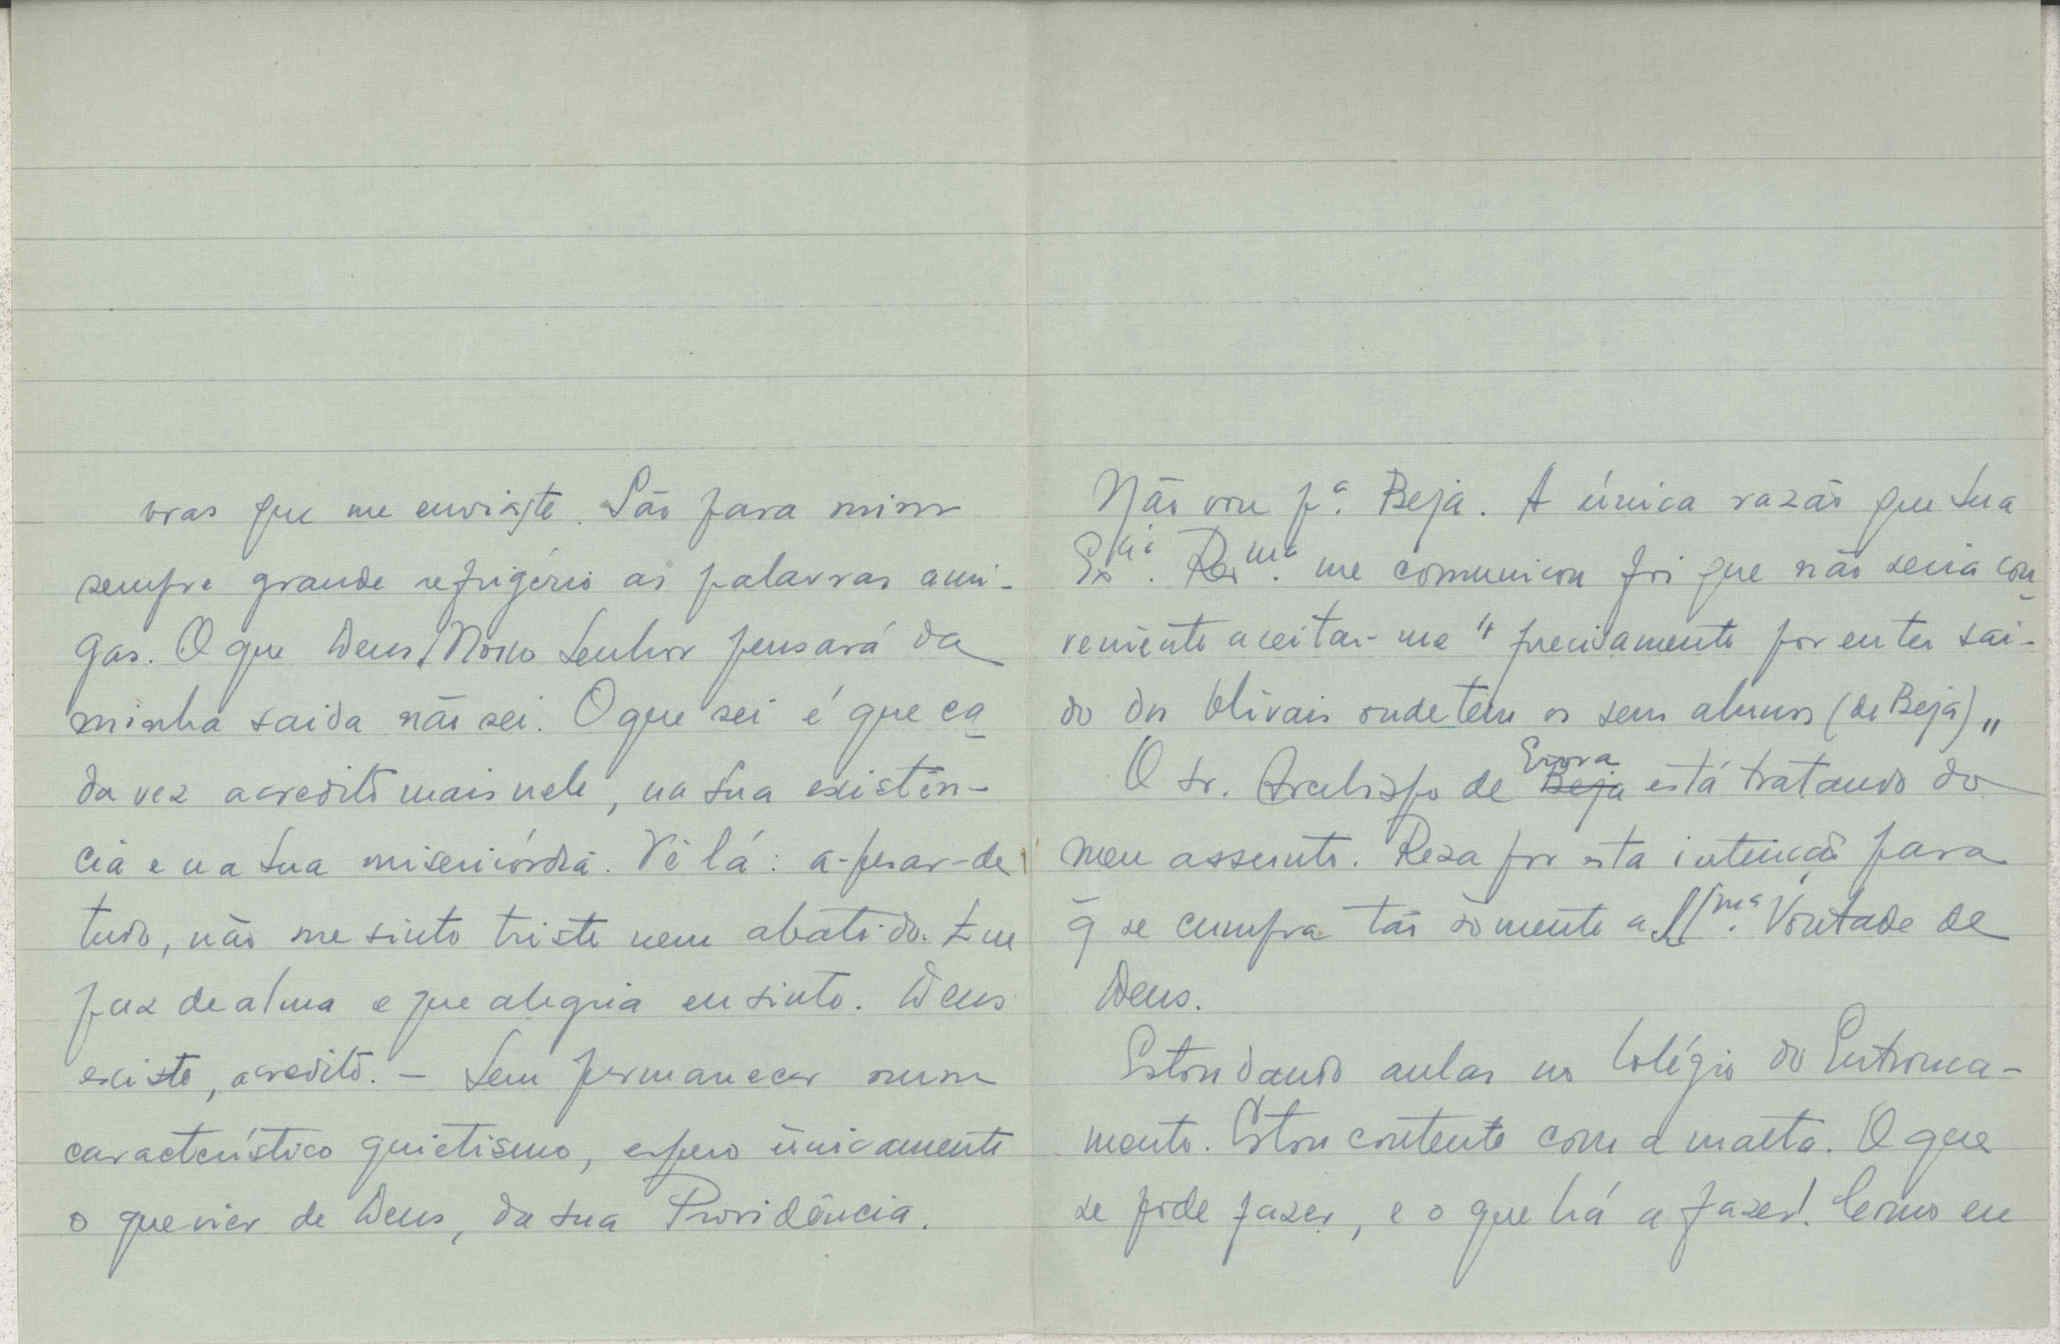 vras que me enviaste. São para mim
sempre grande refrigério as palavras ami-
gas. O que Deus Nosso Senhor pensará da
minha saida não sei. O que sei é que ca
da vez acredito mais nele, na sua existên-
cia e na sua misericórdia. Vê lá: a-pesar-de
tudo, não me sinto triste nem abatido. Que
paz de alma e que alegria eu sinto. Deus
existe, acredito. – Sem permanecer num
característico quietismo, espero ùnicamente
o que vier de Deus, da sua Providência.
Não vou pª. Beja. A única razão que Sua
Exª. Revmª. me comunicou foi que não seria con
veniente aceitar-me "precisamente por eu ter sai-
do dos Olivais onde tem os seus alunos (de Beja)"
O sr. Arcebispo de Beja Evora está tratando do
meu assunto. Reza por esta intenção para
q̄ se cumpra tão sòmente a SSmª. Vontade de
Deus.
Estou dando aulas no Colégio do Entronca-
mento. Estou contente com a malta. O que
se pode fazer, e o que há a fazer! Como eu